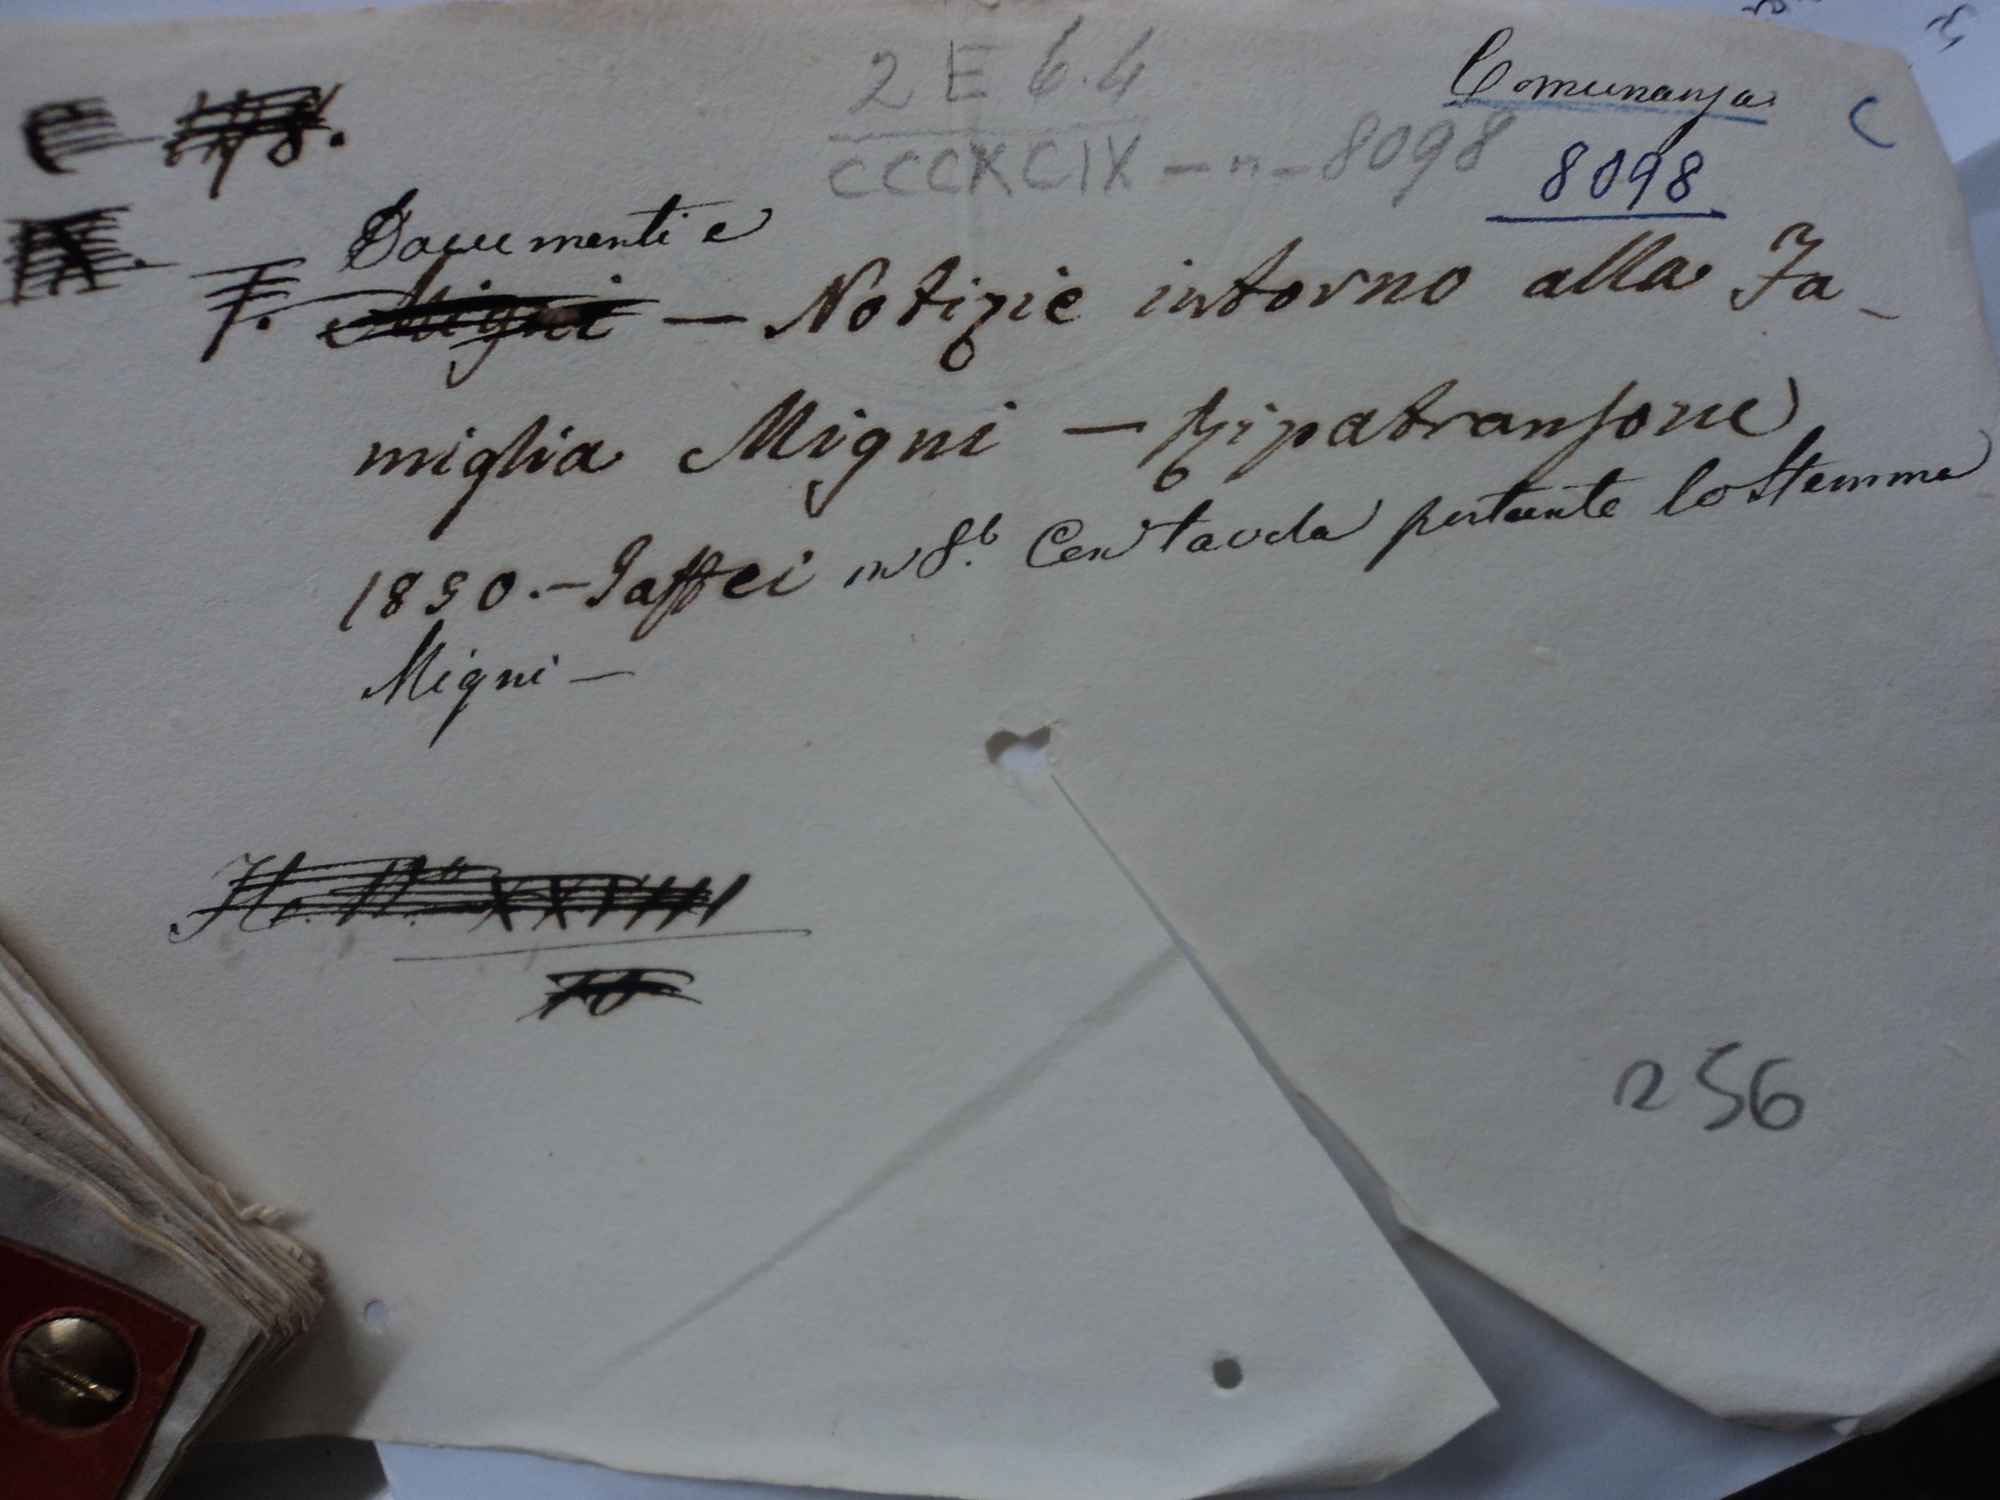 2 E 6.4
CCCXCIX - n - 8098
Comunanza C
8098
Documenti e
F. Migni — Notizie intorno alla Fa-
miglia Migni — Ripatransone
1890. — Jaffei in 8.º Con tavola portante lo Stemma
Migni —
256